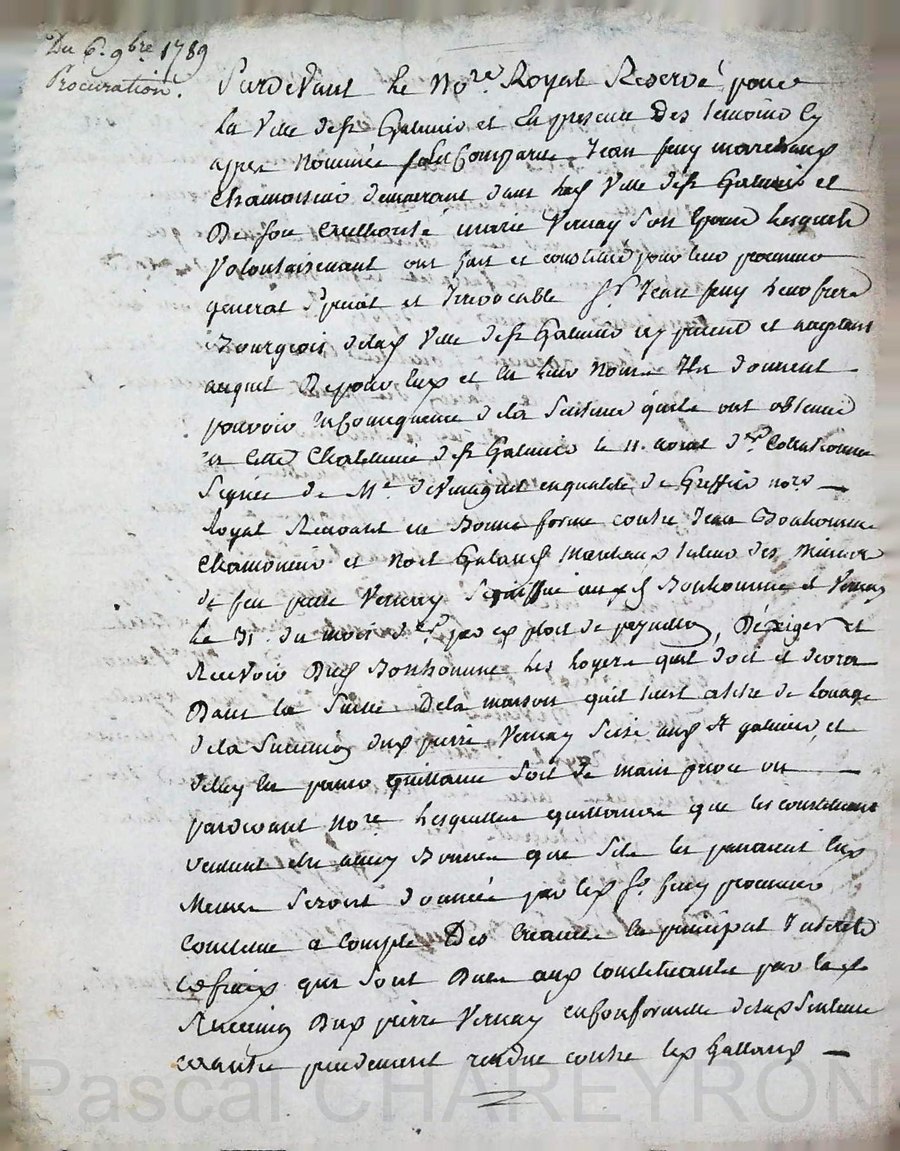 Du 6. 9bre 1789
Procuration.
Pardevant le Nore Royal Reservé pour
la Ville de st Galmier et En presence Des temoins Cy
apres Nommés fut Comparu Jean fery marchand
Chamoiseur demeurant dans lad Ville de st Galmier et
De son authorité marie Vernay son Epouse lesquels
Volontairement ont fait et constitué pour leur procureur
general Special et Irrevocable sr Jean fery leur frere
Bourgeois de lad Ville de st Galmier cy present et acceptant
auquel De pour Eux et En leur Noms Ils donnent
pouvoir En Consequence de la Sentence qu'ils ont obtenue
En Cette Chatelenie de st Galmier le 11. aout der Collationnée
Signée de Me en qualité de Greffier nore
Royal Recevant en Bonne forme contre Jean Bonhomme
Chamoiseur et Noel Galand Marchand tuteur des Mineurs
de feu pierre Vernay Signiffiée auxd Bonhomme et Vernay
le 31. du mois der par exploit de peyrollon, D'Exiger et
Recevoir Dud Bonhomme les loyers quil doit et devra
Dans la Suitte De la maison quil tient a titre de louage
de la Succession dud pierre Vernay Scise aud st galmier, et
d'Elle En passer quittance Soit de main privée ou
pardevant Nore lesquelles quittances que les constituants
veulent etre aussy Bonnes que Si Ils les passaient Eux
Memes Seront données par led sr fery procureur
Constitué a Compte Des Creances En principal Interets
et fraix qui Sont Dues aux Constituants par lad
Succession Dud pierre Vernay en Conformité de lad Sentence
rendue contre led Galland
Pascal CHAREYRON